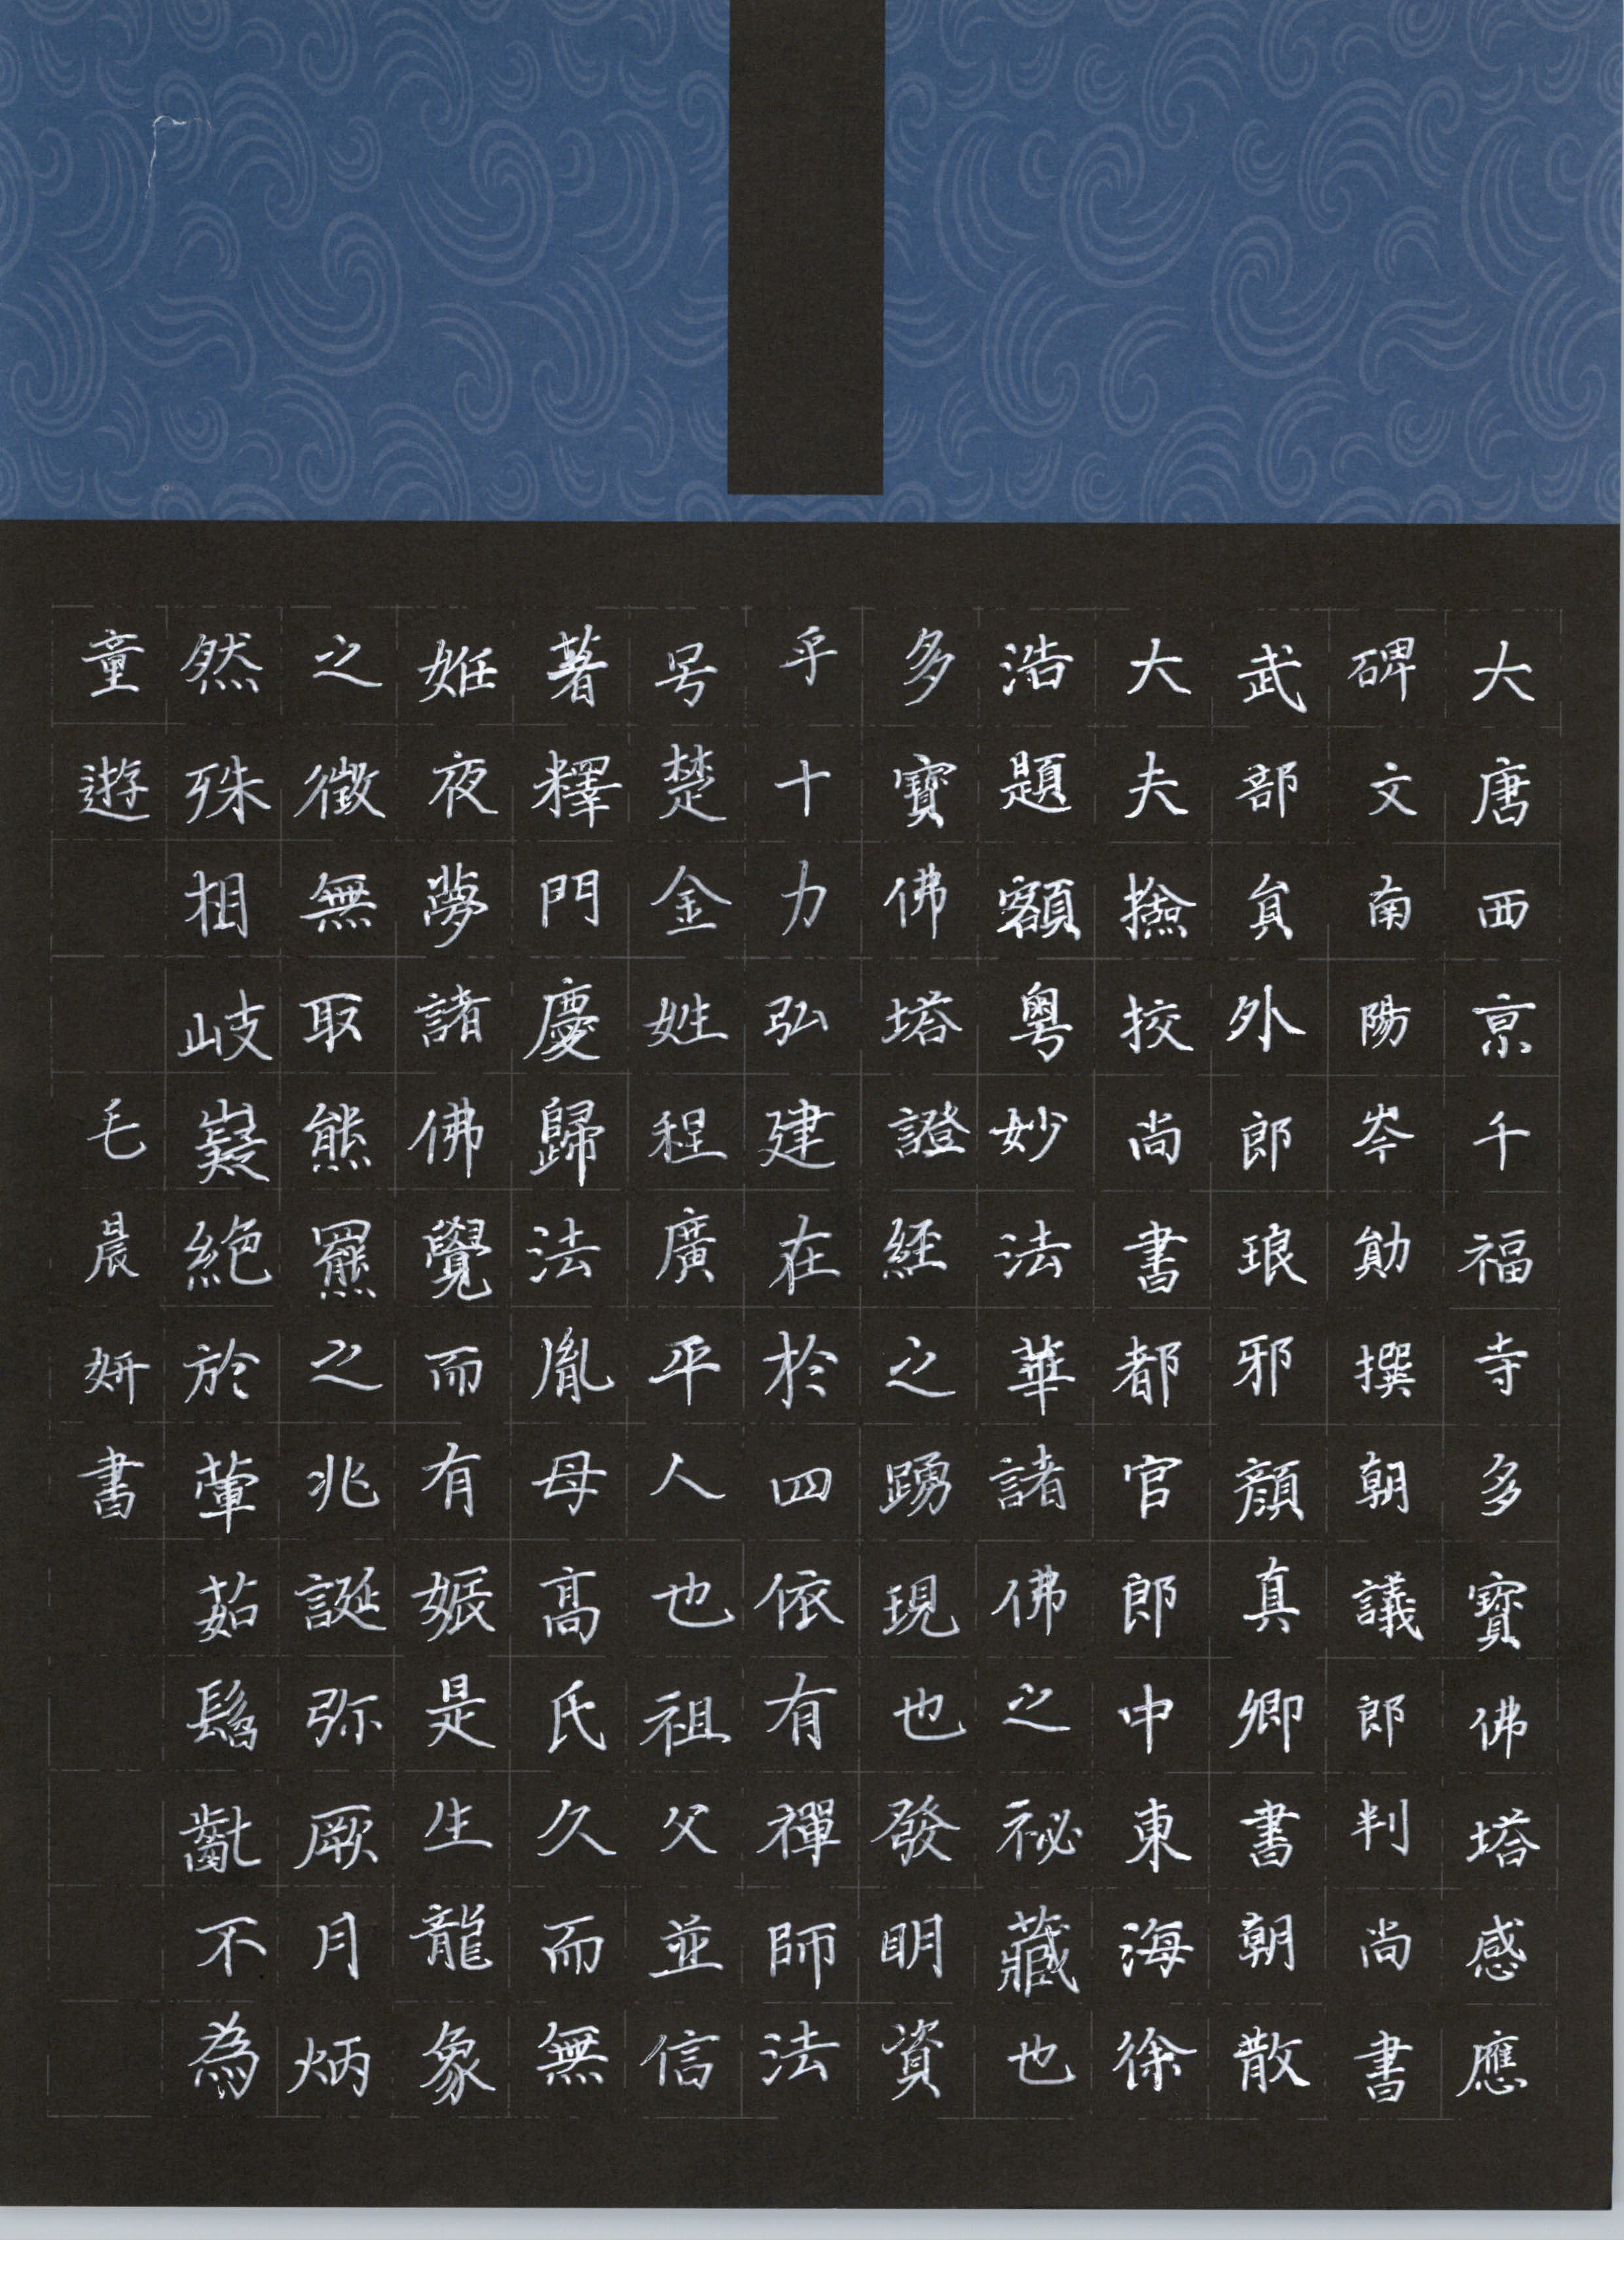 大唐西京千福寺多寶佛塔感應
碑文南陽岑勛撰朝議郎判尚書
武部員外郎琅邪顏真卿書朝散
大夫撿挍尚書都官郎中東海徐
浩題額粵妙法華諸佛之祕藏也
多寶佛塔證經之踴現也發明資
乎十力弘建在於四依有禪師法
号楚金姓程廣平人也祖父並信
著釋門慶歸法胤母高氏久而無
姙夜夢諸佛覺而有娠是生龍象
之徵無取熊羆之兆誕弥厥月炳
然殊相岐嶷絕於葷茹髫齓不為
童遊 毛晨妍書